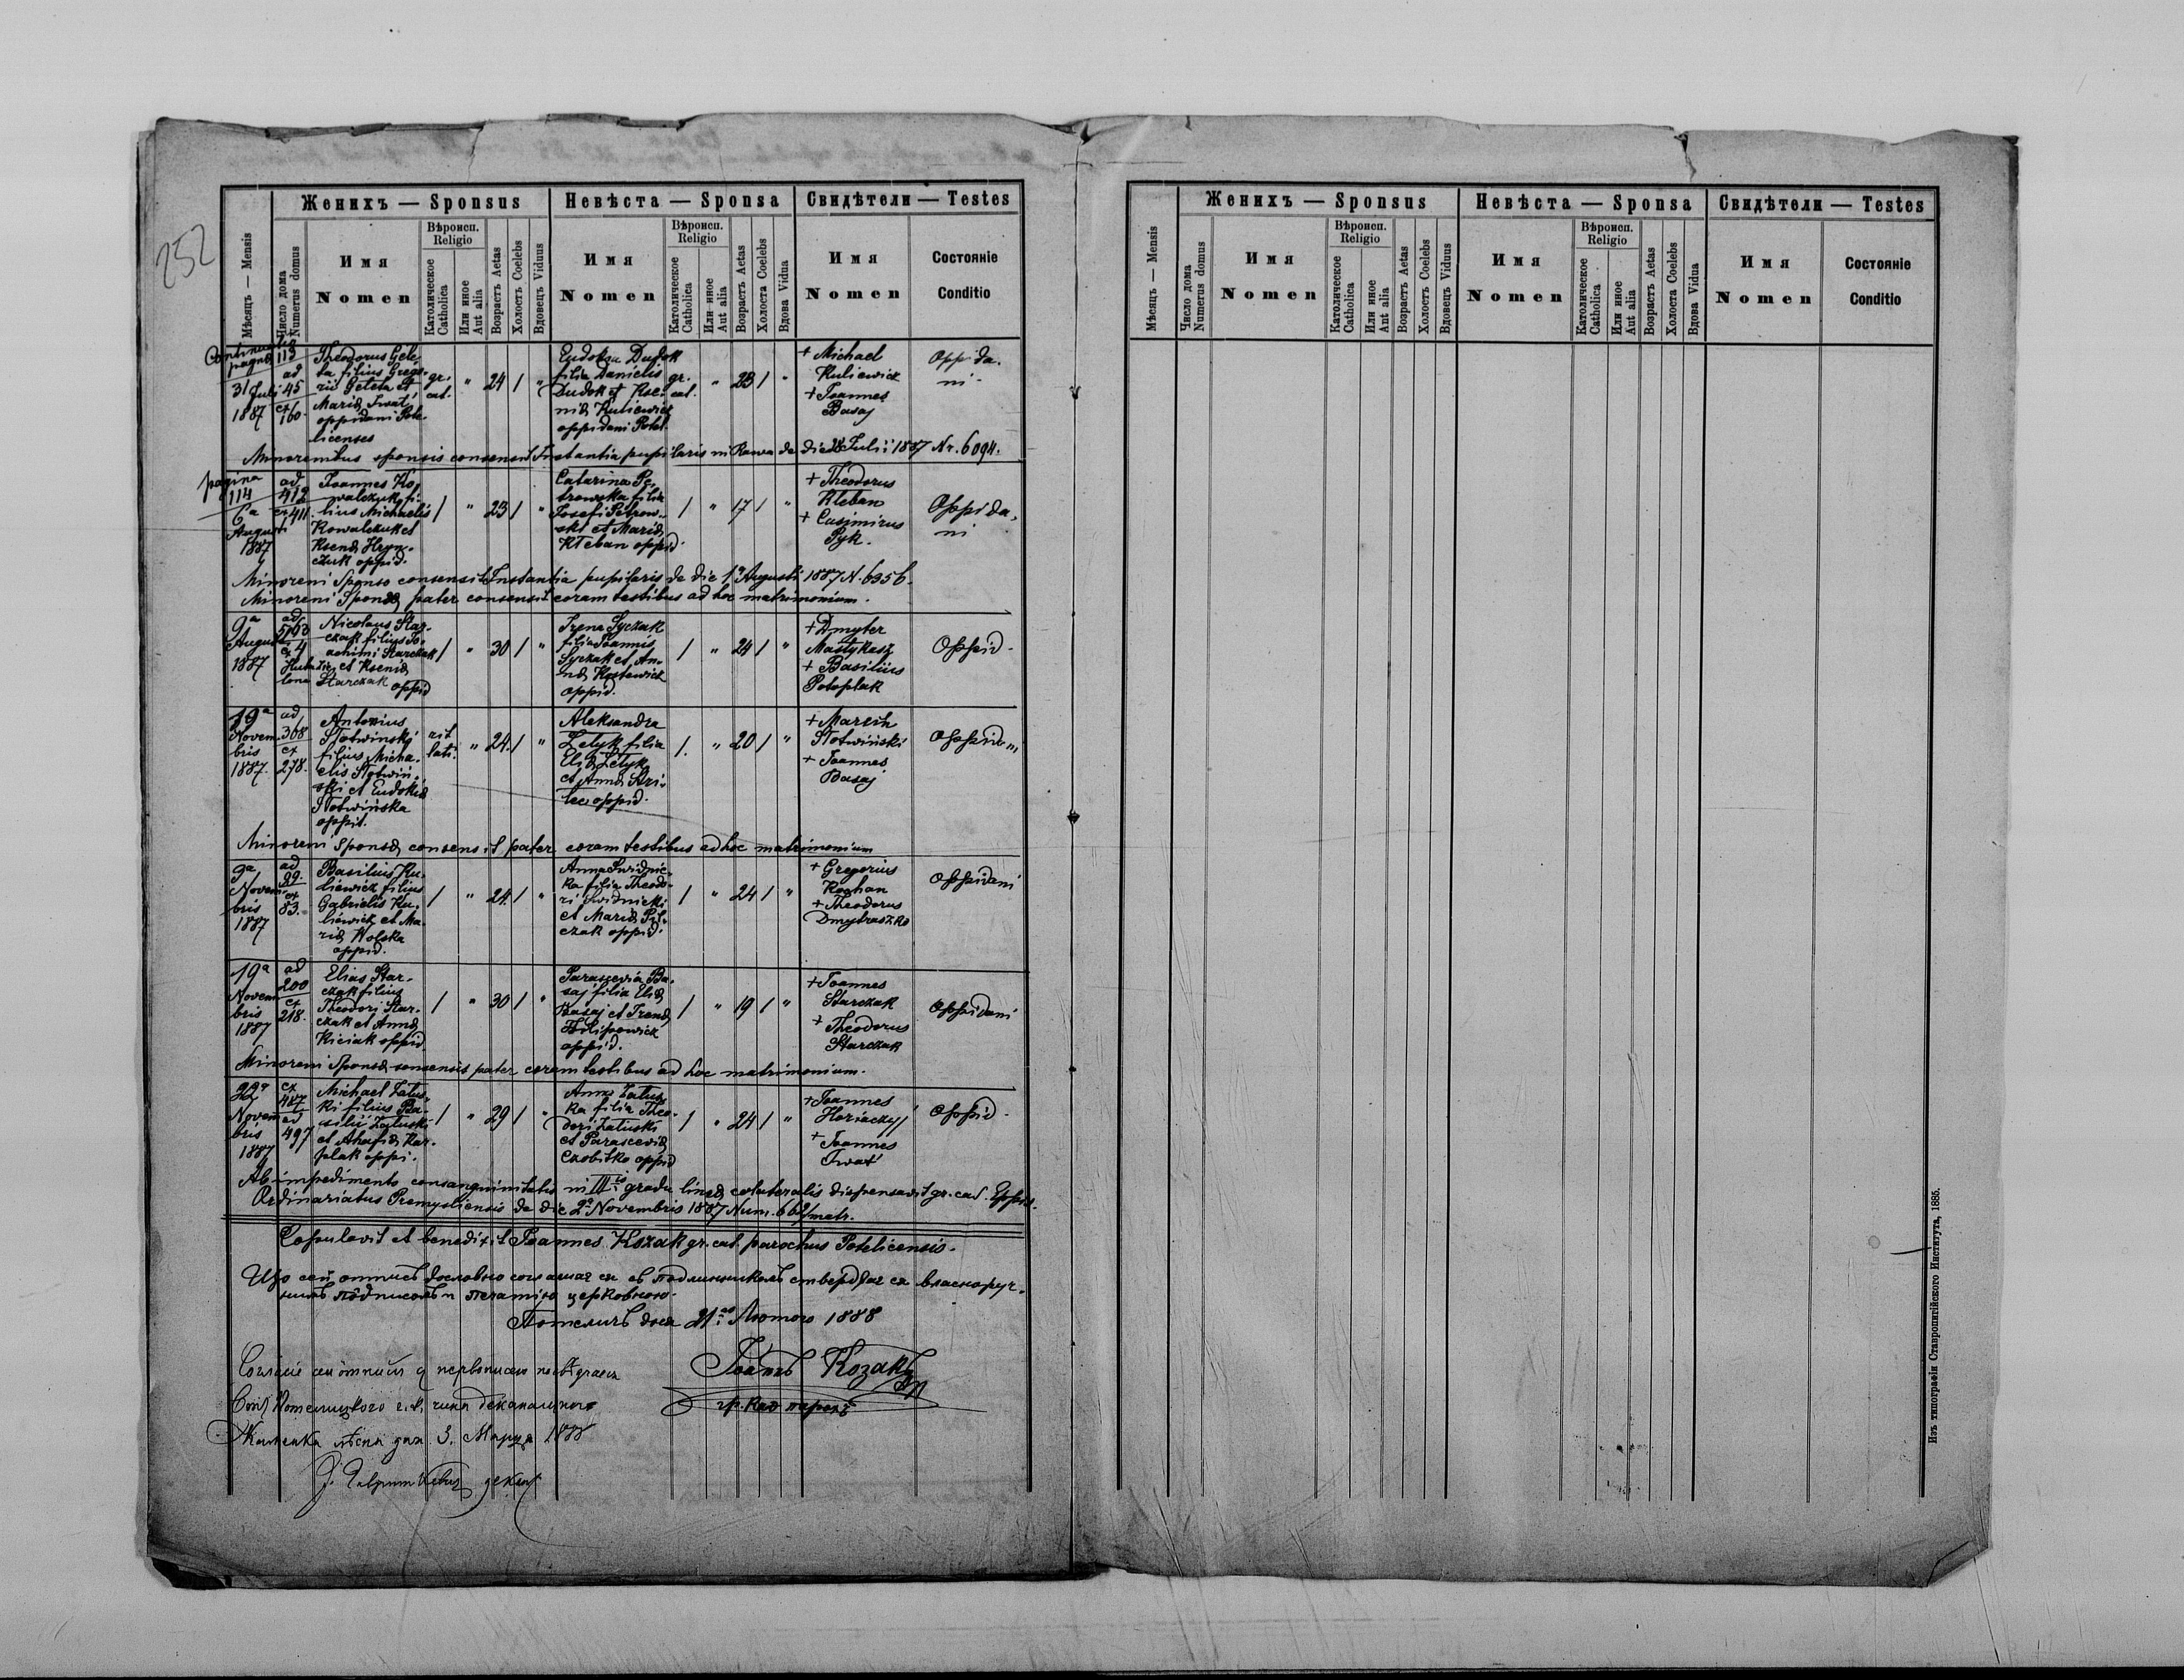 252
Женихъ — Sponsus
Невѣста — Sponsa
Свидѣтели — Testes
Мѣсяцъ — Mensis
Число дома Numerus domus
Имя
Nomen
Вѣроисп. Religio
Католическое Catholica
Или иное Aut alia
Возрастъ Aetas
Холостъ Coelebs
Вдовецъ Viduus
Имя
Nomen
Вѣроисп. Religio
Католическое Catholica
Или иное Aut alia
Возрастъ Aetas
Холоста Coelebs
Вдова Vidua
Имя
Nomen
Состояніе
Conditio
Continuatio
pagna 113
31 Juli
1887
ad
45
et
160
Theodorus Gele-
ta filius Grego-
rii Geleta et
Mariæ Iwat,
oppidani Pote-
licenses
gr.
cat.
" 24 / "
Eudokia Dudok
filia Danielis
Dudok et Kse-
niæ Kuliewicz
oppidani Potel.
gr.
cat.
" 23 / "
+ Michael
Kuliewicz
+ Joannes
Basaj
Oppida-
ni
Minorenibus sponsis consensit Instantia pupilaris in Rawa de die 28 Julii 1887 Nr. 6094.
pagina
114
6a
August
1887
ad
412
et 411
Joannes Ko-
walczuk fi-
lius Michaelis
Kowalczuk et
Kseniæ Hryn-
czuk oppid.
/ " 23 / "
Catarina Pe-
trowska filia
Josefi Petrow-
ski et Mariæ
Kleban oppid.
/ " 17 / "
+ Theodorus
Kleban
+ Casimirus
Pyk.
Oppida-
ni
Minoreni Sponso consensit Instantia pupilaris de die 1a Augusti 1887 N. 6356.
Minoreni Sponsæ pater consensit coram testibus ad hoc matrimonium.
9a
August
1887
ad
et 4
Nicolaus Star-
czak filius Jo-
achimi Starczak
et Kseniæ
Starczak oppid
/ " 30 / "
Irena Syczak
filia Joannis
Syczak et An-
næ Kostewicz
oppid.
/ " 24 / "
+ Dmyter
Mastykasz
+ Basilius
Potoplak
Oppid.
19a
Novem-
bris
1887.
ad
308
et
278.
Antonius
Słotwinski
filius Micha-
elis Słotwin-
ski et Eudokiæ
Słotwińska
oppid.
rit
lati.
" 24. / "
Aleksandra
Zelyk filia
Eliæ Zelyk
et Annæ Stri-
lec oppid.
/. " 20 / "
+ Marcin
Słotwiński
+ Joannes
Basaj
Oppidani
Minoreni Sponsæ consensit pater coram testibus ad hoc matrimonium
9a
Novem-
bris
1887
ad
99.
et
83.
Basilius Ku-
liewicz filius
Gabrielis Ku-
liewicz et Ma-
riæ Wolska
oppid.
/ " 24. / "
Anna Swidnic-
ka filia Theodo-
ri Swidnicki
et Mariæ Pił-
czak oppid.
/ " 24 / "
+ Gregorius
Kochan
+ Theodorus
Dmytraszko
Oppidani
19a
Novem-
bris
1887
ad
200
et
218.
Elias Star-
czak filius
Theodori Star-
czak et Annæ
Kiciak oppid.
/ " 30 / "
Parascevia Ba-
saj filia Eliæ
Basaj et Irenæ
Filipowicz
oppid.
/ " 19 / "
+ Joannes
Starczak
+ Theodorus
Starczak
Oppidani
Minoreni Sponsæ consensit pater coram testibus ad hoc matrimonium.
22a
Novem-
bris
1887
ex
487
ad
497
Michael Załus-
ki filius Ba-
silii Załuski
et Ahafiæ Kar-
plak oppi.
/ " 29 / "
Anna Załus-
ka filia Theo-
dori Załuski
et Parasceviæ
Czobitko oppid
/ " 24 / "
+ Joannes
Horiaczyj
+ Joannes
Iwat
Oppid.
Ab impedimento consanguinitatis in III gradu lineæ colateralis dispensavit gr. cat. Eppus.
Ordinariatus Premysliensis de die 2a Novembris 1887 Num. 662/matr.
Copulavit et benedixit Joannes Kozak gr. cat. parochus Potelicensis.
Що сей отписъ дословно согламае ся съ подлинникомъ ствердяе ся власноруч-
нимъ подписомъ и печатію церковною.
Потеличъ дня 21го Лютого 1888
Іоаннъ Козакъ
гр. кат парохъ
3. Марця 1888
декан
Женихъ — Sponsus
Невѣста — Sponsa
Свидѣтели — Testes
Мѣсяцъ — Mensis
Число дома Numerus domus
Имя
Nomen
Вѣроисп. Religio
Католическое Catholica
Или иное Aut alia
Возрастъ Aetas
Холостъ Coelebs
Вдовецъ Viduus
Имя
Nomen
Вѣроисп. Religio
Католическое Catholica
Или иное Aut alia
Возрастъ Aetas
Холоста Coelebs
Вдова Vidua
Имя
Nomen
Состояніе
Conditio
Изъ типографіи Ставропигійского Института, 1885.